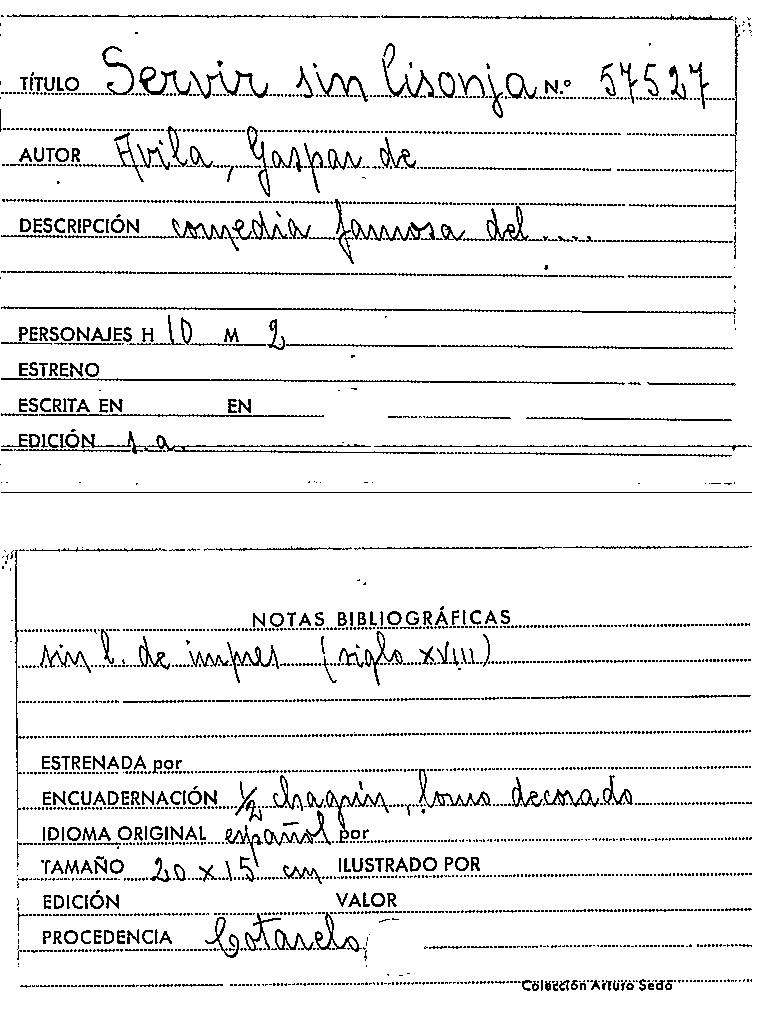 TÍTULO Servir sin lisonja N.º 57527
AUTOR Avila, Gaspar de
DESCRIPCIÓN comedia famosa del....
PERSONAJES H 10 M 2
ESTRENO
ESCRITA EN EN
EDICIÓN s.a.
NOTAS BIBLIOGRÁFICAS
sin l. de impres (siglo XVIII)
ESTRENADA por
ENCUADERNACIÓN 1/2 chagrín, lomo decorado
IDIOMA ORIGINAL español por
TAMAÑO 20 x 15 cm ILUSTRADO POR
EDICIÓN VALOR
PROCEDENCIA Cotarelo
Colección Arturo Sedó